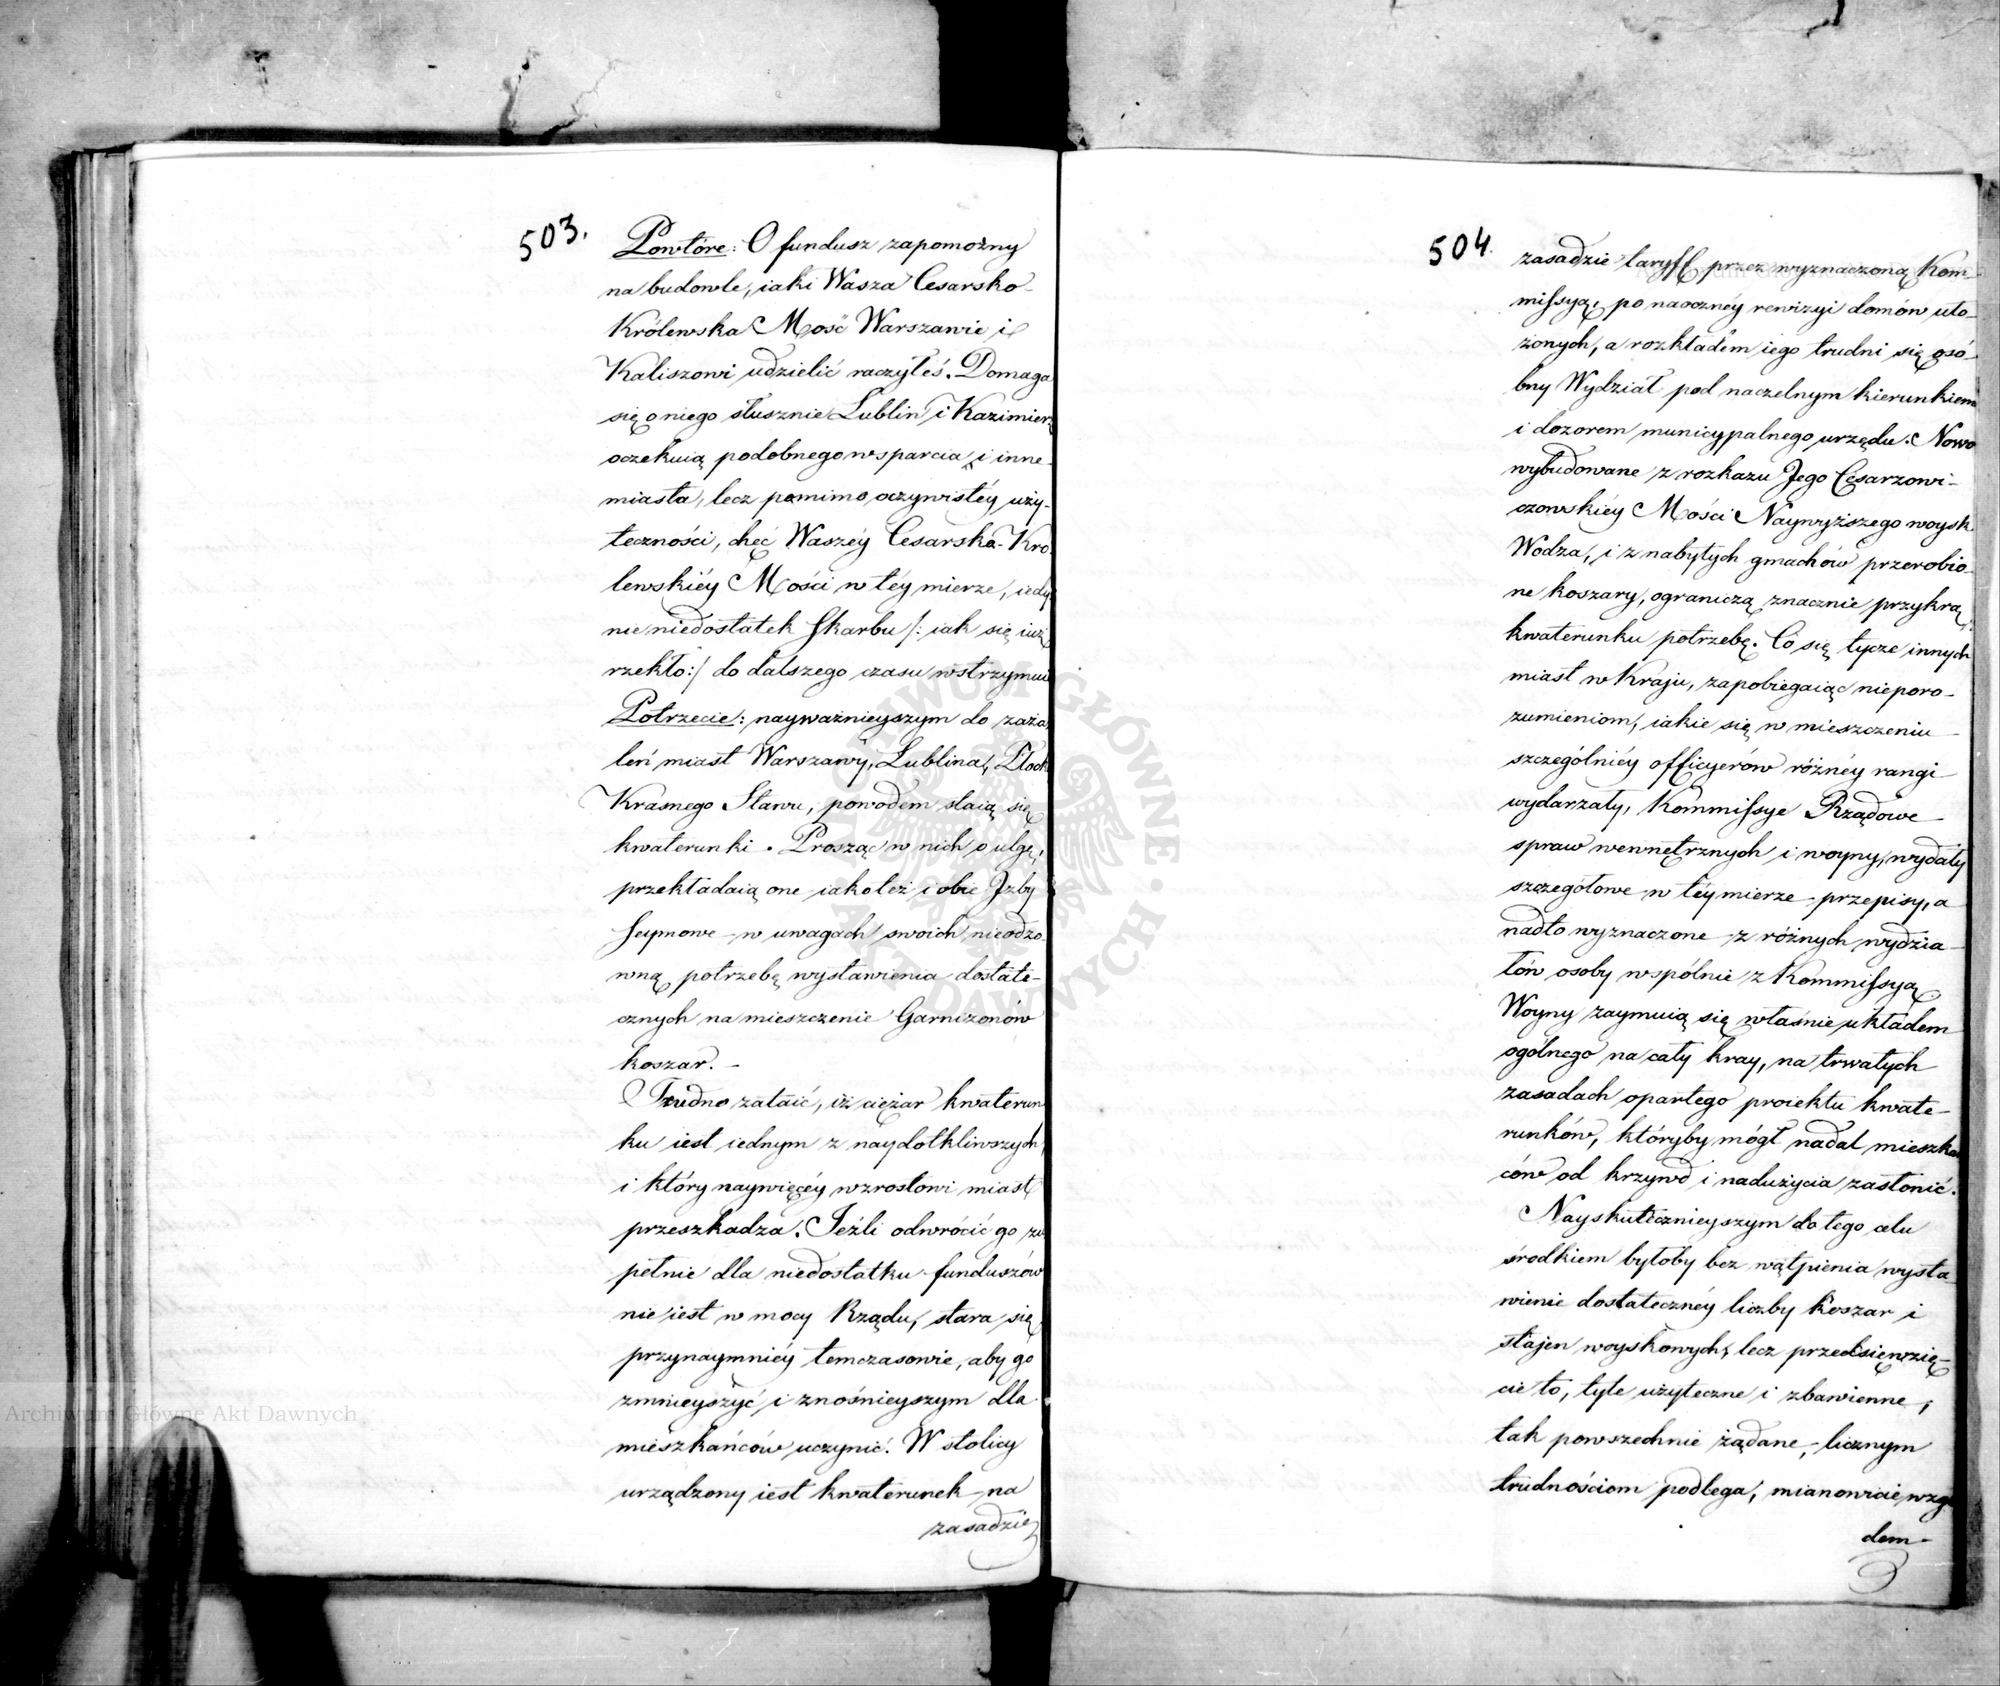 503.
Powtóre: O fundusz zapomożny
na budowle, iaki Wasza Cesarsko-
Królewska Mość Warszawie i
Kaliszowi udzielić raczyłeś. Domaga
się o niego słusznie Lublin i Kazimierz
oczekuią podobnego wsparcia i inne
miasta, lecz pomimo oczywistéy uży-
teczności, chęć Waszéy Cesarsko-Kró-
lewskiéy Mości w téy mierze, iedy-
nie niedostatek Skarbu /: iak się iuż
rzekło:/ do dalszego czasu wstrzymuie
Potrzecie: nayważnieyszym do zaża-
leń miast Warszawy, Lublina, Płock
Krasnego Stawu, powodem staią się
kwaterunki. Prosząc w nich o ulgę,
przekładaią one iakoteż i obie Izby
Seymowe w uwagach swoich nieodzo-
wną potrzebę wystawienia dostate-
cznych na mieszczenie Garnizonów
koszar. -
Trudno zataić, iż ciężar kwaterun
ku iest iednym z naydotkliwszych,
i który naywięcéy wzrostowi miast
przeszkadza. Jeżli odwrócić go zu
pełnie dla niedostatku funduszów
nie iest w mocy Rządu, stara się
przynaymniéy temczasowie, aby go
zmnieyszyć i znośnieyszym dla
mieszkańców uczynić. W stolicy
urządzony iest kwaterunek na
zasadzie
504.
zasadzie taryff przez wyznaczoną Kom-
missyą, po naocznéy rewizyi domów uło-
żonych, a rozkładem iego trudni się osó-
bny Wydział pod naczelnym kierunkiem
i dozorem municypalnego urzędu. Nowo
wybudowane z rozkazu Jego Cesarzowi-
czowskiéy Mości Naywyższego woysk
Wodza, i z nabytych gmachów przerobio-
ne koszary, ograniczą znacznie przykrą
kwaterunku potrzebę. Co się tycze innych
miast w Kraju, zapobiegaiąc nieporo-
zumieniom, iakie się w mieszczeniu
szczególniéy officyerów różnéy rangi
wydarzały, Kommissye Rządowe
spraw wewnętrznych i woyny, wydały
szczegółowe w téy mierze przepisy, a
nadto wyznaczone z różnych wydzia-
łów osoby wspólnie z Kommissyą
Woyny zaymuią się właśnie układem
ogólnego na cały kray, na trwałych
zasadach opartego proiektu kwate-
runków, któryby mógł nadal mieszkań
ców od krzywd i nadużycia zasłonić.
Nayskutecznieyszym do tego celu
środkiem byłoby bez wątpienia wysta-
wienie dostatecznéy liczby koszar i
stajen woyskowych, lecz przedsięwzię-
cie to, tyle użyteczne i zbawienne,
tak powszechnie żądane, licznym
trudnościom podlega, mianowicie wzglę
dem-
Archiwum Główne Akt Dawnych
ARCHIWUM GŁÓWNE AKT DAWNYCH